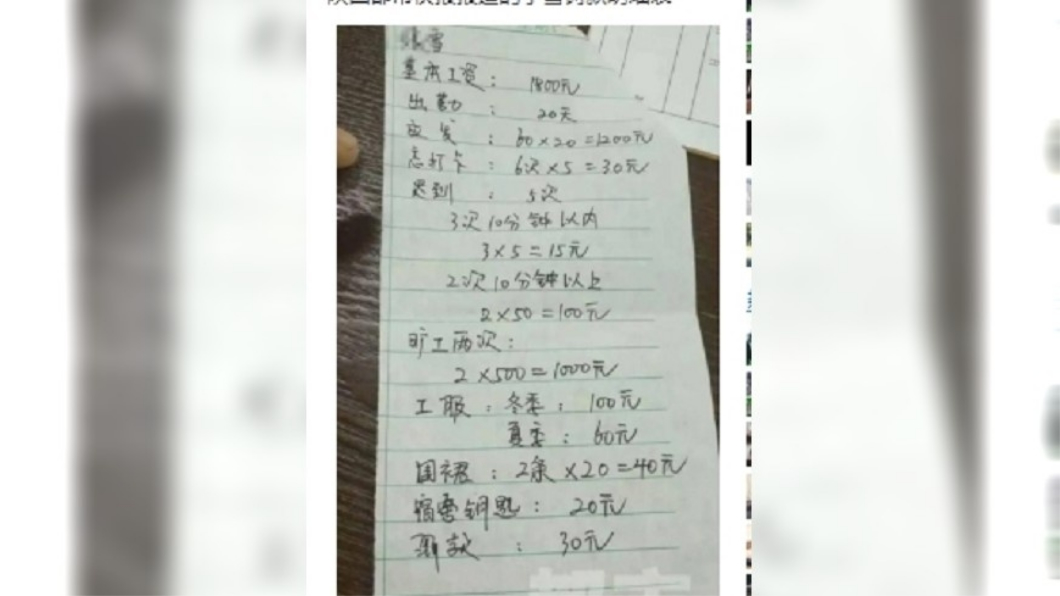 基本工资： 1800元
出勤 ： 20天
应发 ： 60×20=1200元
忘打卡 ： 6次×5=30元
迟到 ： 5次
3次10分钟以内
3×5=15元
2次10分钟以上
2×50=100元
旷工两次：
2×500=1000元
工服：冬季： 100元
夏季： 60元
围裙：2条×20=40元
宿舍钥匙： 20元
： 30元